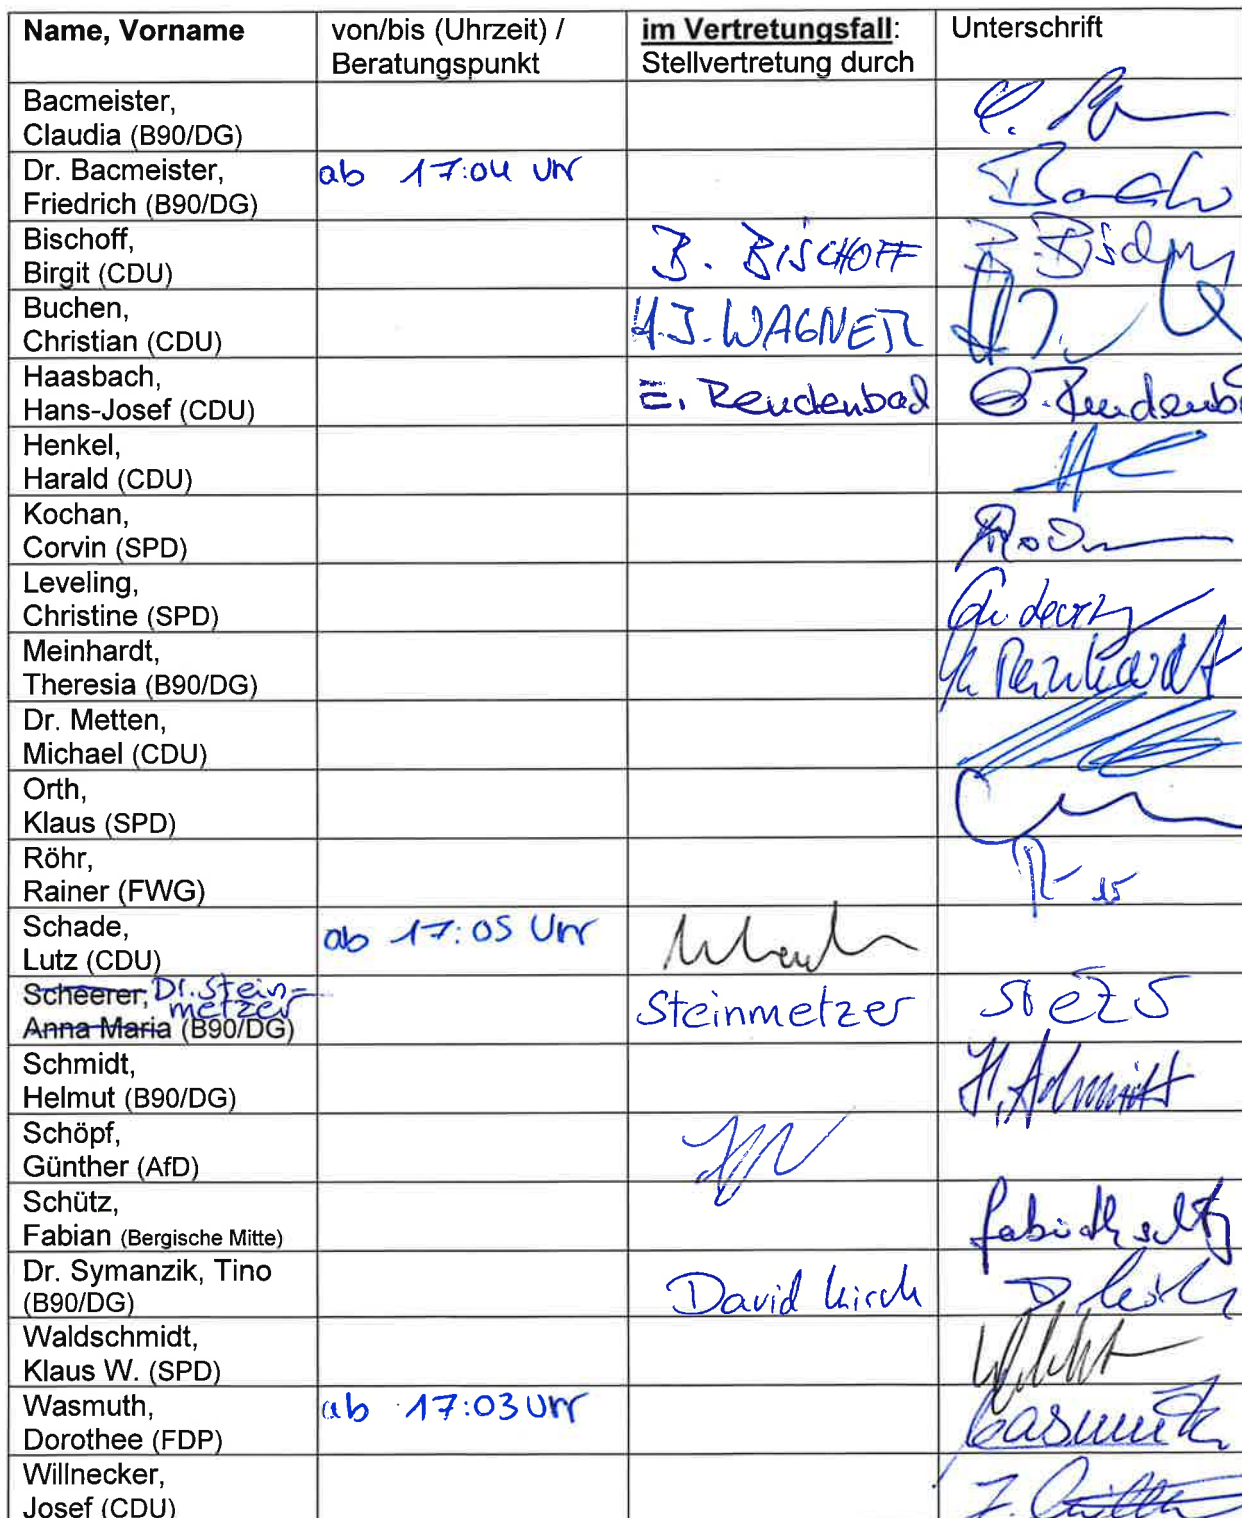 Name, Vorname
von/bis (Uhrzeit) /
Beratungspunkt
im Vertretungsfall:
Stellvertretung durch
Unterschrift
Bacmeister,
Claudia (B90/DG)
Dr. Bacmeister,
Friedrich (B90/DG)
ab 17:04 Uhr
Bischoff,
Birgit (CDU)
B. BISCHOFF
B. Bischoff
Buchen,
Christian (CDU)
H.J. WAGNER
Haasbach,
Hans-Josef (CDU)
E.
Henkel,
Harald (CDU)
Kochan,
Corvin (SPD)
Leveling,
Christine (SPD)
Meinhardt,
Theresia (B90/DG)
Meinhardt
Dr. Metten,
Michael (CDU)
Orth,
Klaus (SPD)
Röhr,
Rainer (FWG)
Schade,
Lutz (CDU)
ab 17:05 Uhr
Scheerer, Dr. Stein-
metzer
Anna Maria (B90/DG)
Steinmetzer
Schmidt,
Helmut (B90/DG)
H. Schmidt
Schöpf,
Günther (AfD)
Schütz,
Fabian (Bergische Mitte)
Dr. Symanzik, Tino
(B90/DG)
David Kirch
Waldschmidt,
Klaus W. (SPD)
Wasmuth,
Dorothee (FDP)
ab 17:03 Uhr
Wasmuth
Willnecker,
Josef (CDU)